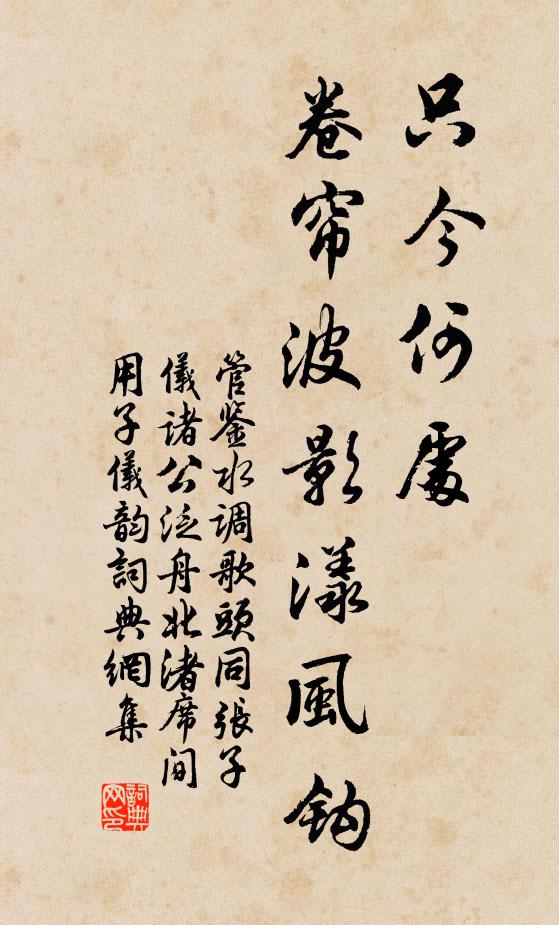 只今何處
卷帘波影漾風鈎
管鉴水调歌頭同張子
儀诸公泛舟北渚席间
用子儀韵詞典網集
詞典
网印